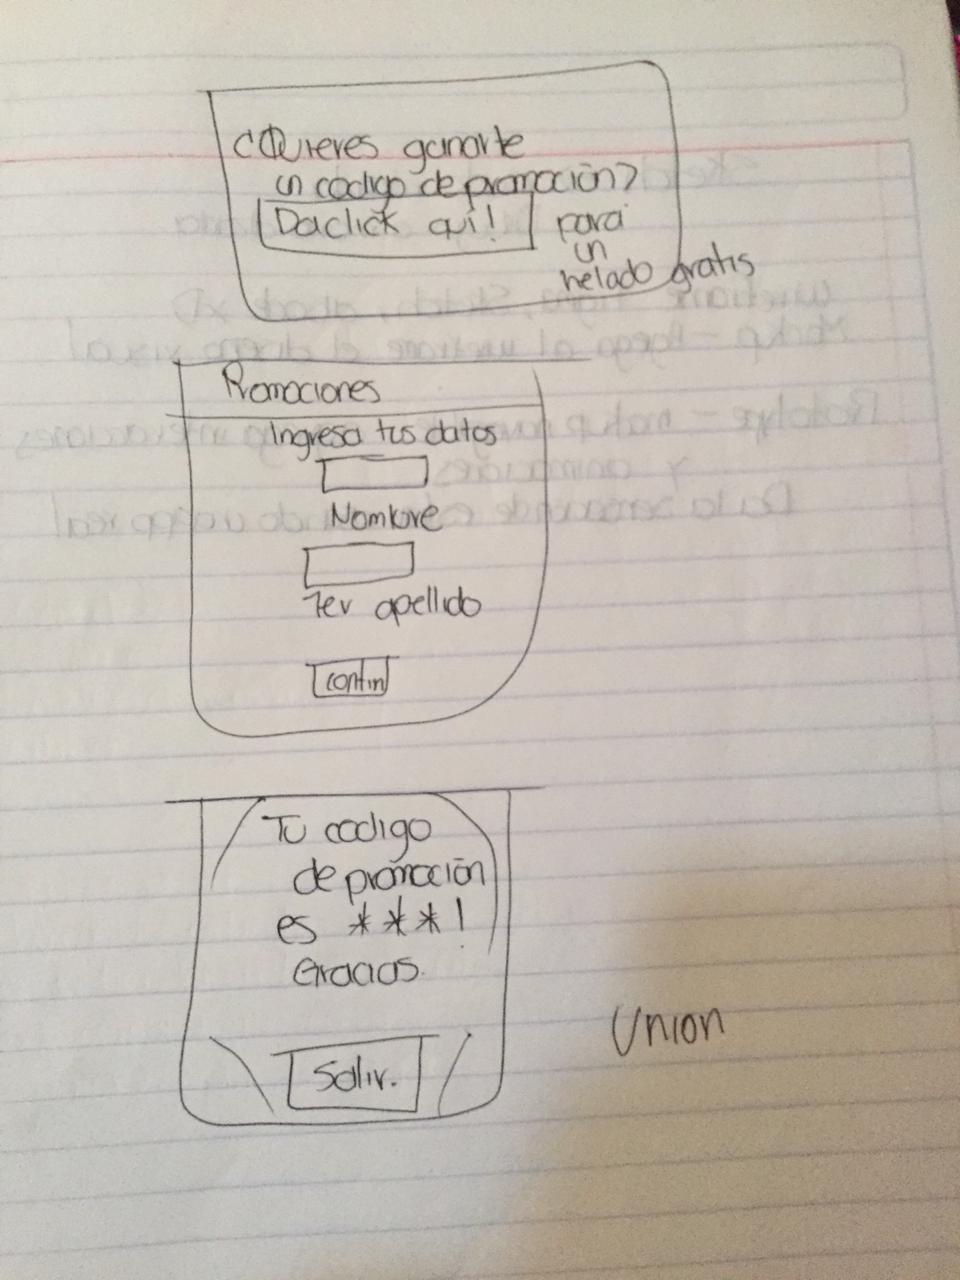 ¿Quieres ganarte
un código de promoción?
Da click quí! para
un
helado gratis
Promociones
Ingresa tus datos
Nombre
1er apellido
contin
Tu codigo
de promoción
es ***!
Gracias.
Salir.
Union